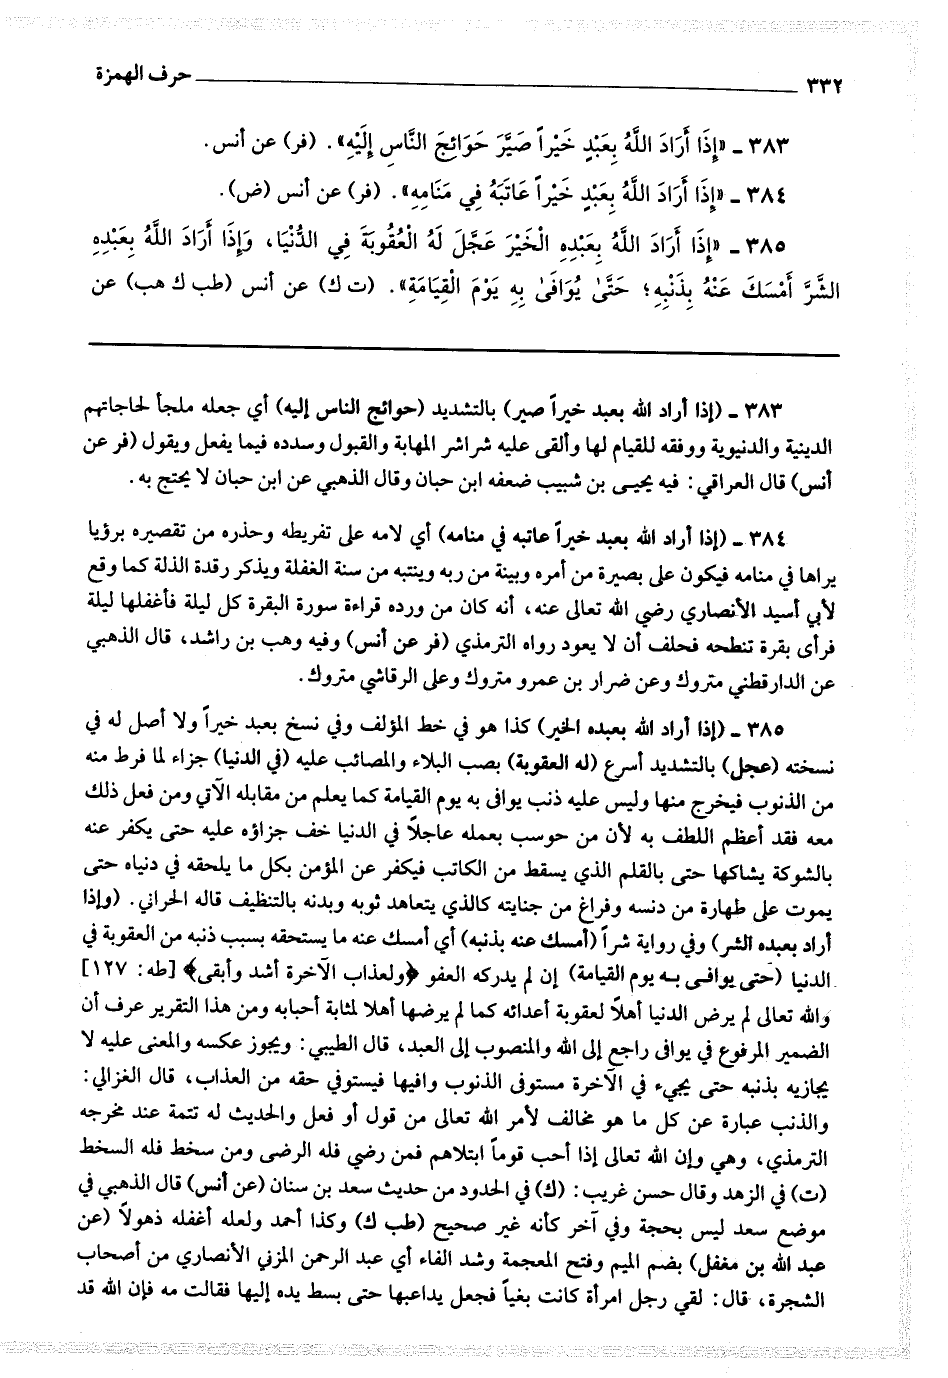 ٣٣٢ حرف الهمزة
٣٨٣ ـ «إِذَا أَرَادَ اللَّهُ بِعَبْدٍ خَيْراً صَيَّرَ حَوَائِجَ النَّاسِ إِلَيْهِ». (فر) عن أنس.
٣٨٤ ـ «إِذَا أَرَادَ اللَّهُ بِعَبْدٍ خَيْراً عَاتَبَهُ فِي مَنَامِهِ». (فر) عن أنس (ض).
٣٨٥ ـ «إِذَا أَرَادَ اللَّهُ بِعَبْدِهِ الْخَيْرَ عَجَّلَ لَهُ الْعُقُوبَةَ فِي الدُّنْيَا، وَإِذَا أَرَادَ اللَّهُ بِعَبْدِهِ
الشَّرَّ أَمْسَكَ عَنْهُ بِذَنْبِهِ؛ حَتَّىٰ يُوَافَىٰ بِهِ يَوْمَ الْقِيَامَةِ». (ت ك) عن أنس (طب ك هب) عن
٣٨٣ ـ (إذا أراد الله بعبد خيراً صير) بالتشديد (حوائج الناس إليه) أي جعله ملجأ لحاجاتهم
الدينية والدنيوية ووفقه للقيام لها وألقى عليه شراشر المهابة والقبول وسدده فيما يفعل ويقول (فر عن
أنس) قال العراقي: فيه يحيـى بن شبيب ضعفه ابن حبان وقال الذهبي عن ابن حبان لا يحتج به.
٣٨٤ ـ (إذا أراد الله بعبد خيراً عاتبه في منامه) أي لامه على تفريطه وحذره من تقصيره برؤيا
يراها في منامه فيكون على بصيرة من أمره وبينة من ربه وينتبه من سنة الغفلة ويذكر رقدة الذلة كما وقع
لأبي أسيد الأنصاري رضي الله تعالى عنه، أنه كان من ورده قراءة سورة البقرة كل ليلة فأغفلها ليلة
فرأى بقرة تنطحه فحلف أن لا يعود رواه الترمذي (فر عن أنس) وفيه وهب بن راشد، قال الذهبي
عن الدارقطني متروك وعن ضرار بن عمرو متروك وعلى الرقاشي متروك.
٣٨٥ ـ (إذا أراد الله بعبده الخير) كذا هو في خط المؤلف وفي نسخ بعبد خيراً ولا أصل له في
نسخته (عجل) بالتشديد أسرع (له العقوبة) بصب البلاء والمصائب عليه (في الدنيا) جزاء لما فرط منه
من الذنوب فيخرج منها وليس عليه ذنب يوافى به يوم القيامة كما يعلم من مقابله الآتي ومن فعل ذلك
معه فقد أعظم اللطف به لأن من حوسب بعمله عاجلاً في الدنيا خف جزاؤه عليه حتى يكفر عنه
بالشوكة يشاكها حتى بالقلم الذي يسقط من الكاتب فيكفر عن المؤمن بكل ما يلحقه في دنياه حتى
يموت على طهارة من دنسه وفراغ من جنايته كالذي يتعاهد ثوبه وبدنه بالتنظيف قاله الحراني. (وإذا
أراد بعبده الشر) وفي رواية شراً (أمسك عنه بذنبه) أي أمسك عنه ما يستحقه بسبب ذنبه من العقوبة في
الدنيا (حتى يوافـى بـه يوم القيامة) إن لم يدركه العفو ﴿ولعذاب الآخرة أشد وأبقى﴾ [طه: ١٢٧]
والله تعالى لم يرض الدنيا أهلاً لعقوبة أعدائه كما لم يرضها أهلا لمثابة أحبابه ومن هذا التقرير عرف أن
الضمير المرفوع في يوافى راجع إلى الله والمنصوب إلى العبد، قال الطيبي: ويجوز عكسه والمعنى عليه لا
يجازيه بذنبه حتى يجيء في الآخرة مستوفى الذنوب وافيها فيستوفي حقه من العذاب، قال الغزالي:
والذنب عبارة عن كل ما هو مخالف لأمر الله تعالى من قول أو فعل والحديث له تتمة عند مخرجه
الترمذي، وهي وإن الله تعالى إذا أحب قوماً ابتلاهم فمن رضي فله الرضى ومن سخط فله السخط
(ت) في الزهد وقال حسن غريب: (ك) في الحدود من حديث سعد بن سنان (عن أنس) قال الذهبي في
موضع سعد ليس بحجة وفي آخر كأنه غير صحيح (طب ك) وكذا أحمد ولعله أغفله ذهولاً (عن
عبد الله بن مغفل) بضم الميم وفتح المعجمة وشد الفاء أي عبد الرحمن المزني الأنصاري من أصحاب
الشجرة، قال: لقي رجل امرأة كانت بغياً فجعل يداعبها حتى بسط يده إليها فقالت مه فإن الله قد